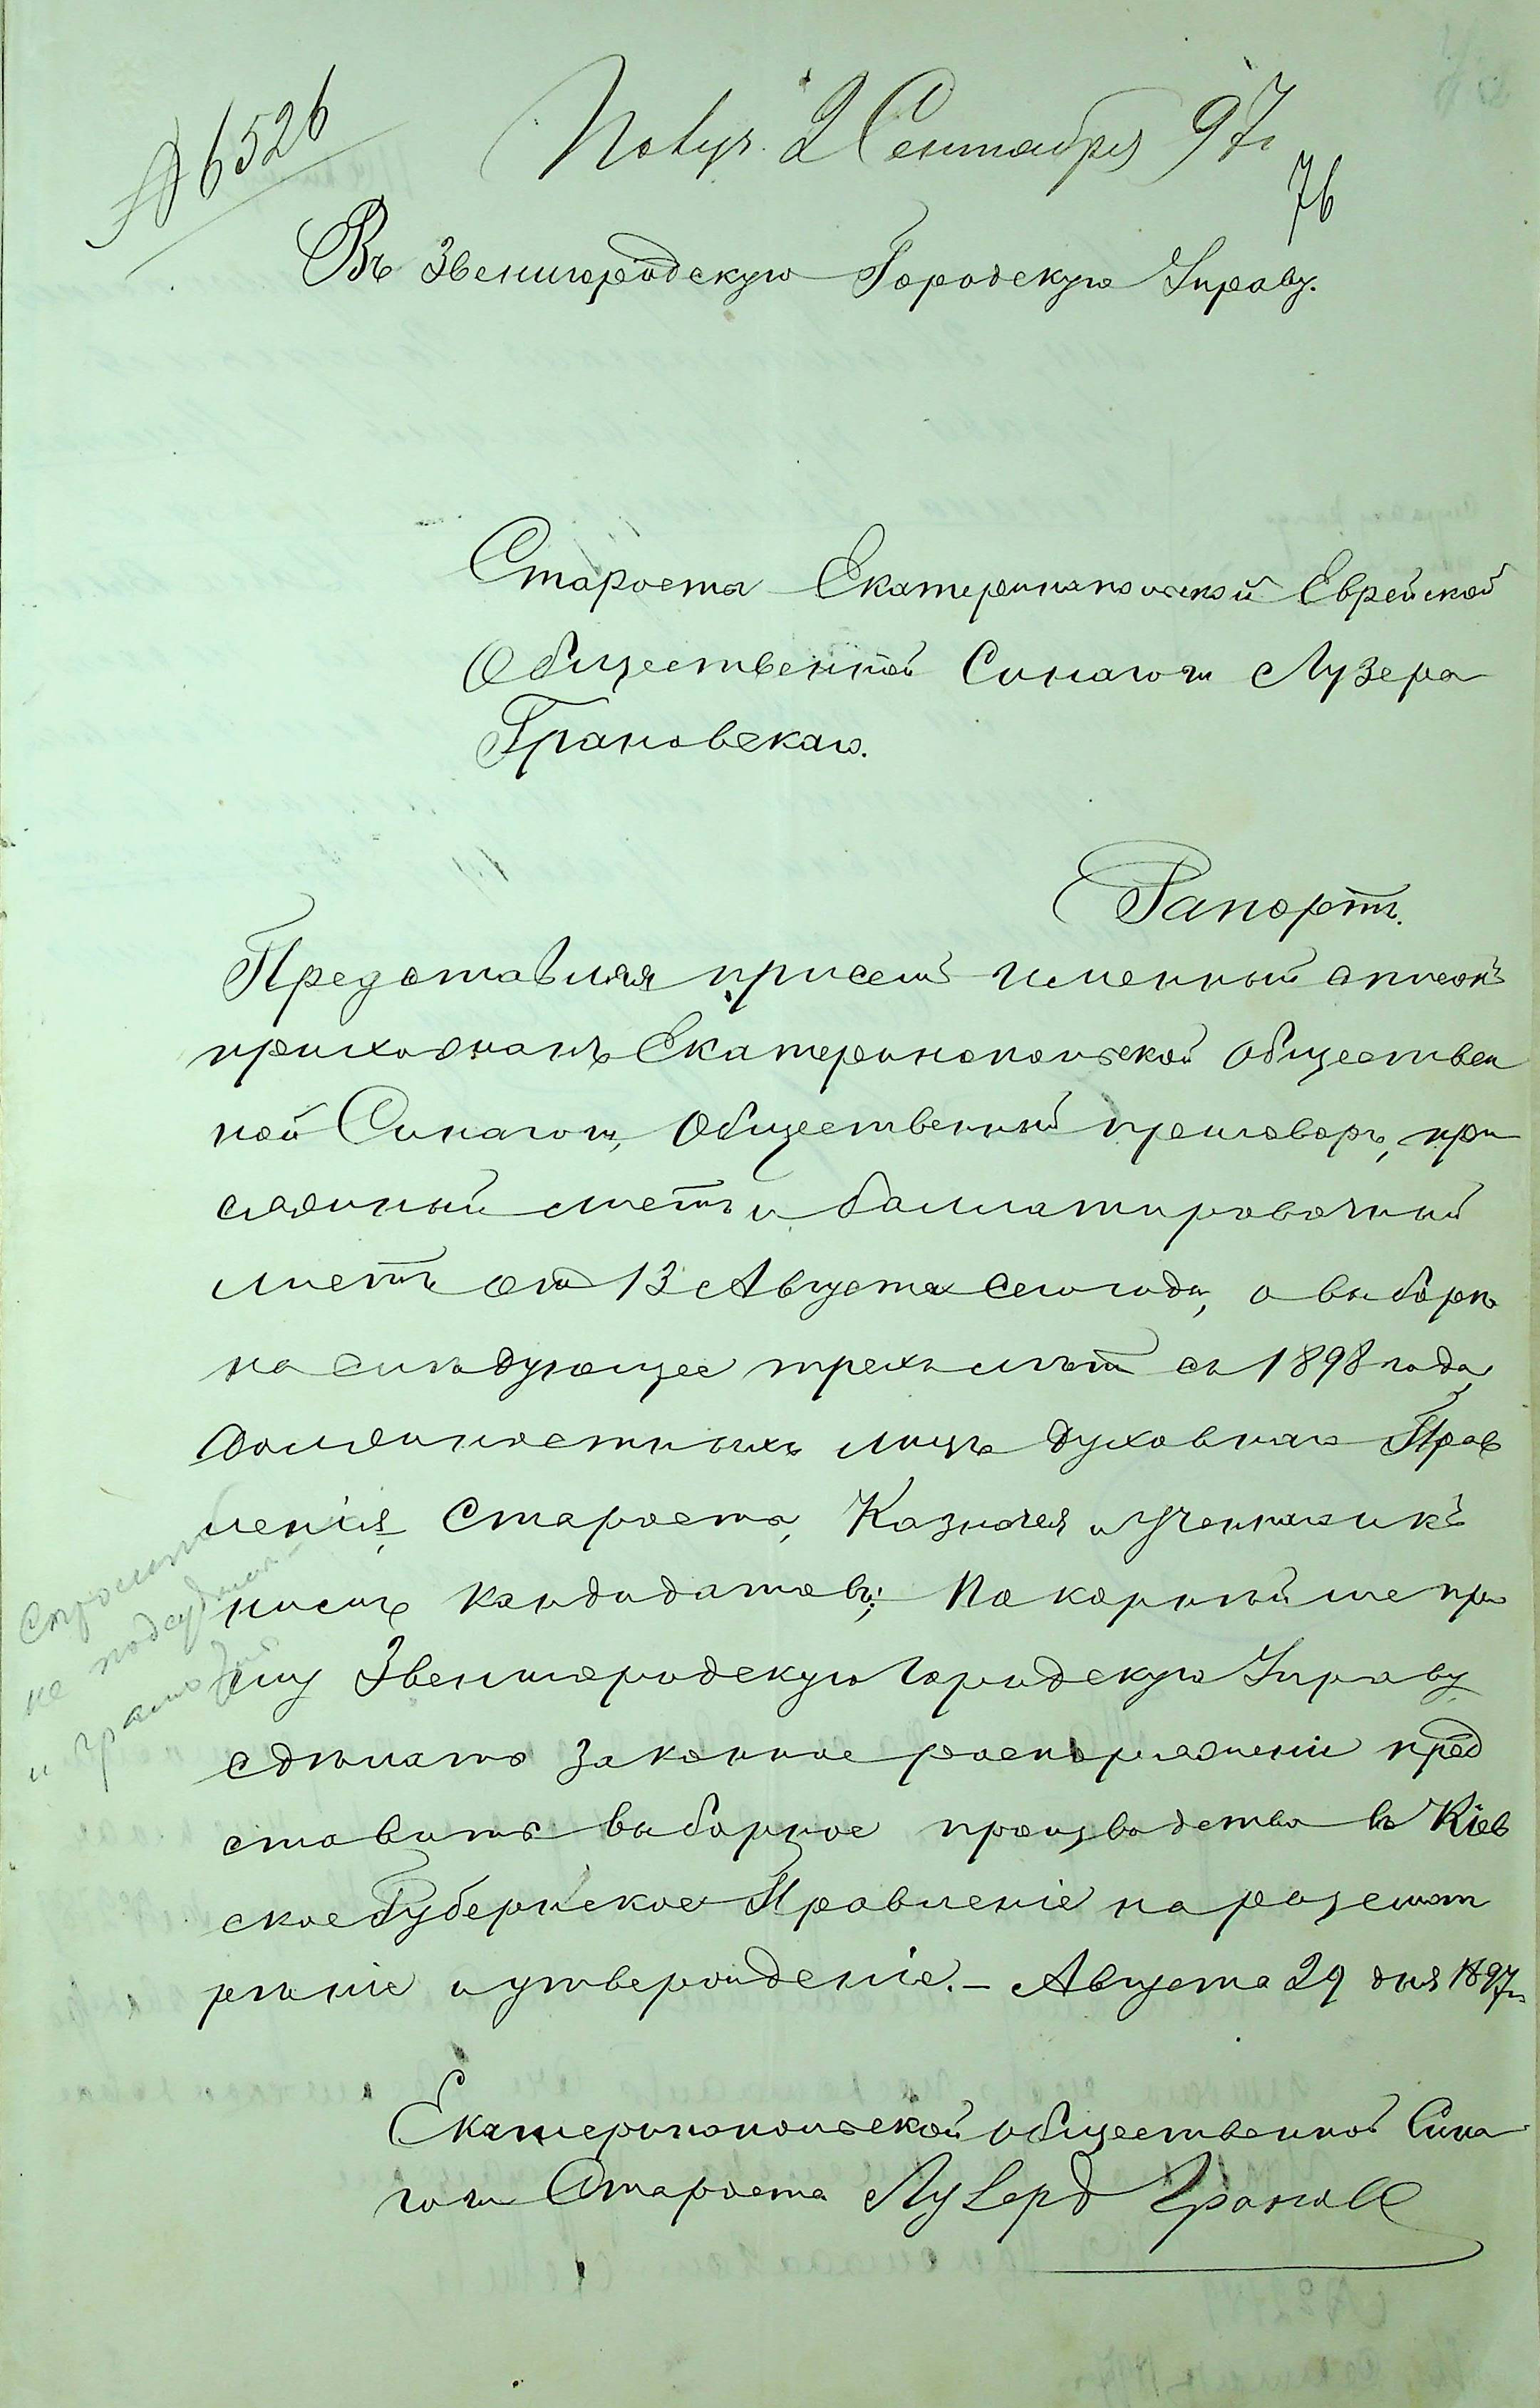 № 6526
Получ. 2 Сентября 97 г
76
Въ Звенигородскую Городскую Управу.
Старосты Екатеринопольской Еврейской
Общественной Синагоги Лузера
Грановскаго.
Рапортъ.
Представляя присемъ именный списокъ
прихожанъ Екатеринопольской Обществен
ной Синагоги, Общественный приговоръ, при
сяжный листъ и баллатировочный
листъ отъ 13 Августа сего года, о выборѣ
на слѣдующее трехълѣтіе съ 1898 года,
должностныхъ лицъ духовнаго Прав
ленія, Староста, Казначея и Ученнаго и къ
нимъ кандидатовъ; Покорнѣйше про
шу Звенигородскую Городскую Управу
сдѣлать законное распоряженіе пред
ставить выборное производство въ Кіев
ское Губернское Правленіе на разсмот
рѣніе и утвержденіе. – Августа 29 дня 1897 г.
не подсудим
и грамотн
Екатеринопольской общественной Сина
гоги Староста Лузеръ Гранов